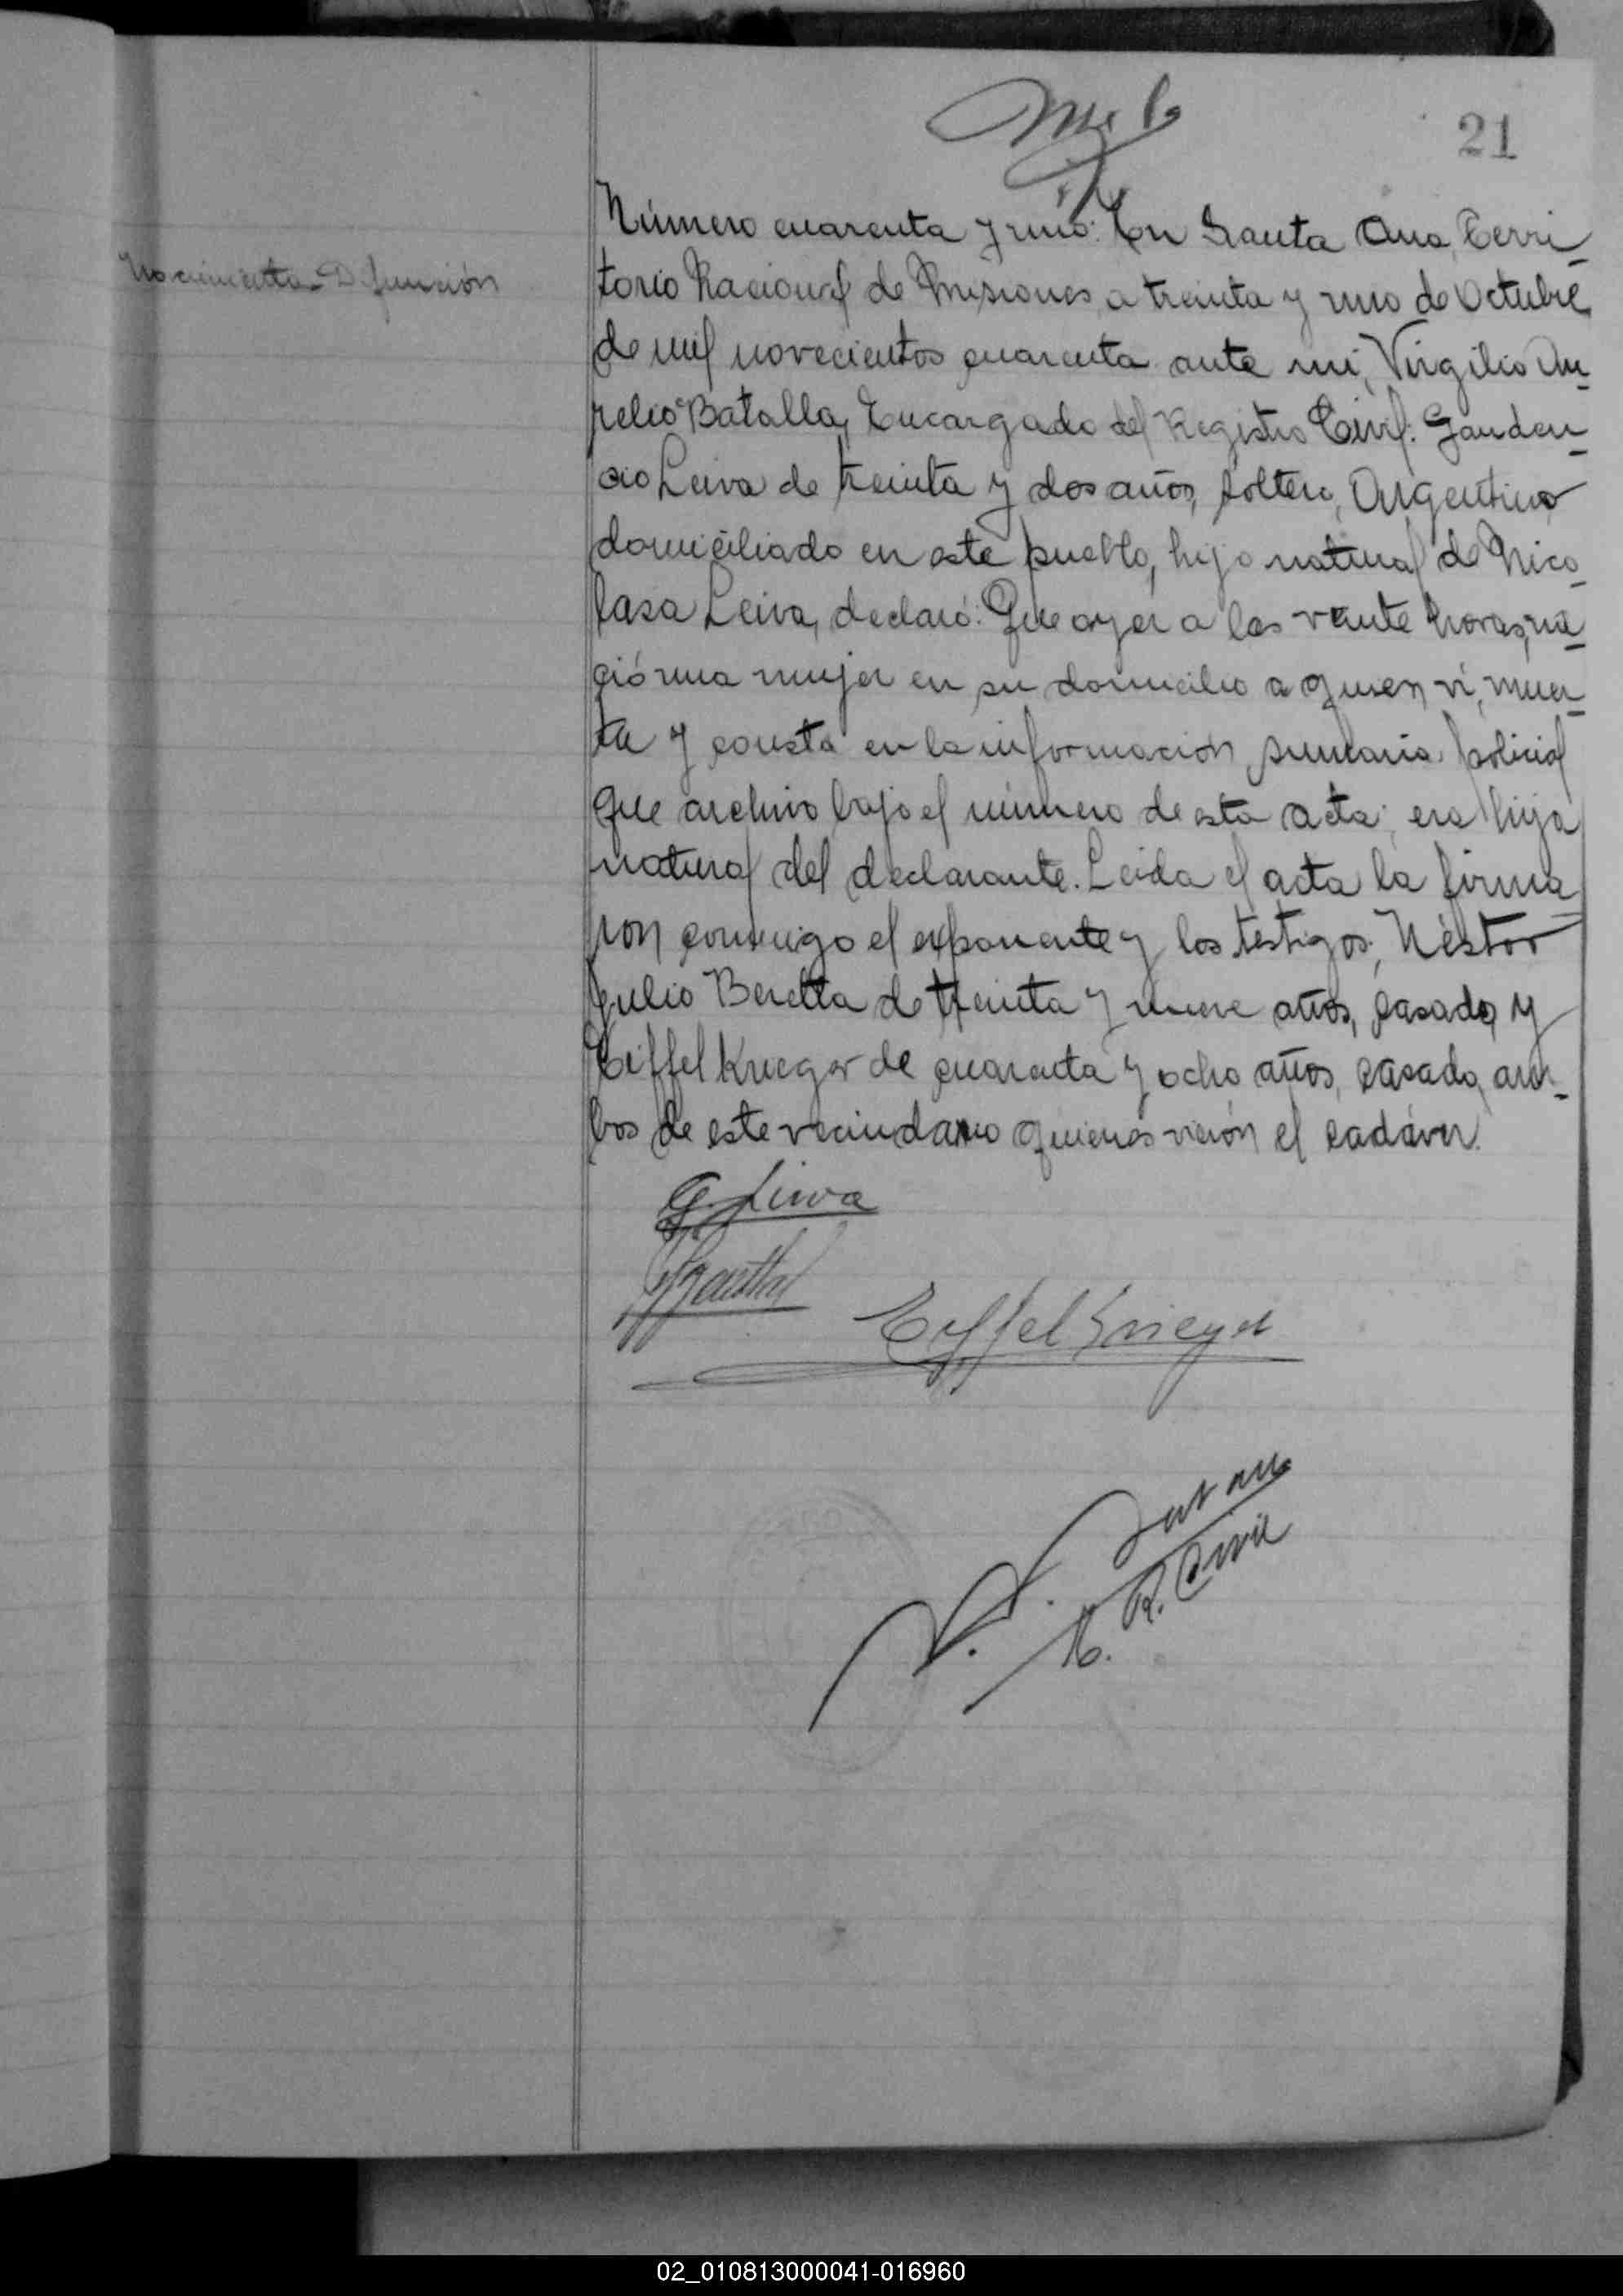 21
Número cuarenta y uno: En Santa Ana, Terri-
Nacimiento-Defunción
torio Nacional de Misiones, a treinta y uno de Octubre
de mil novecientos cuarenta ante mi, Virgilio Au-
relio Batalla, Encargado del Registro Civil: Gauden-
cio Leiva de treinta y dos años, soltero, Argentino
domiciliado en este pueblo, hijo natural de Nico-
lasa Leiva, declaró: Que ayer a las veinte horas, na-
ció una mujer en su domicilio a quien ví, muer-
ta y consta en la información sumaria policial
que archivo bajo el número de esta acta; era hija
natural del declarante. Leida el acta la firma
ron conmigo el exponente y los testigos; Néstor
Julio Beretta de treinta y nueve años, casado, y
Eiffel Krieger de cuarenta y ocho años, casado, am-
bos de este vecindario quienes vieron el cadáver.
G. Leiva
Eiffel Krieger
E. R. Civil
02_010813000041-016960